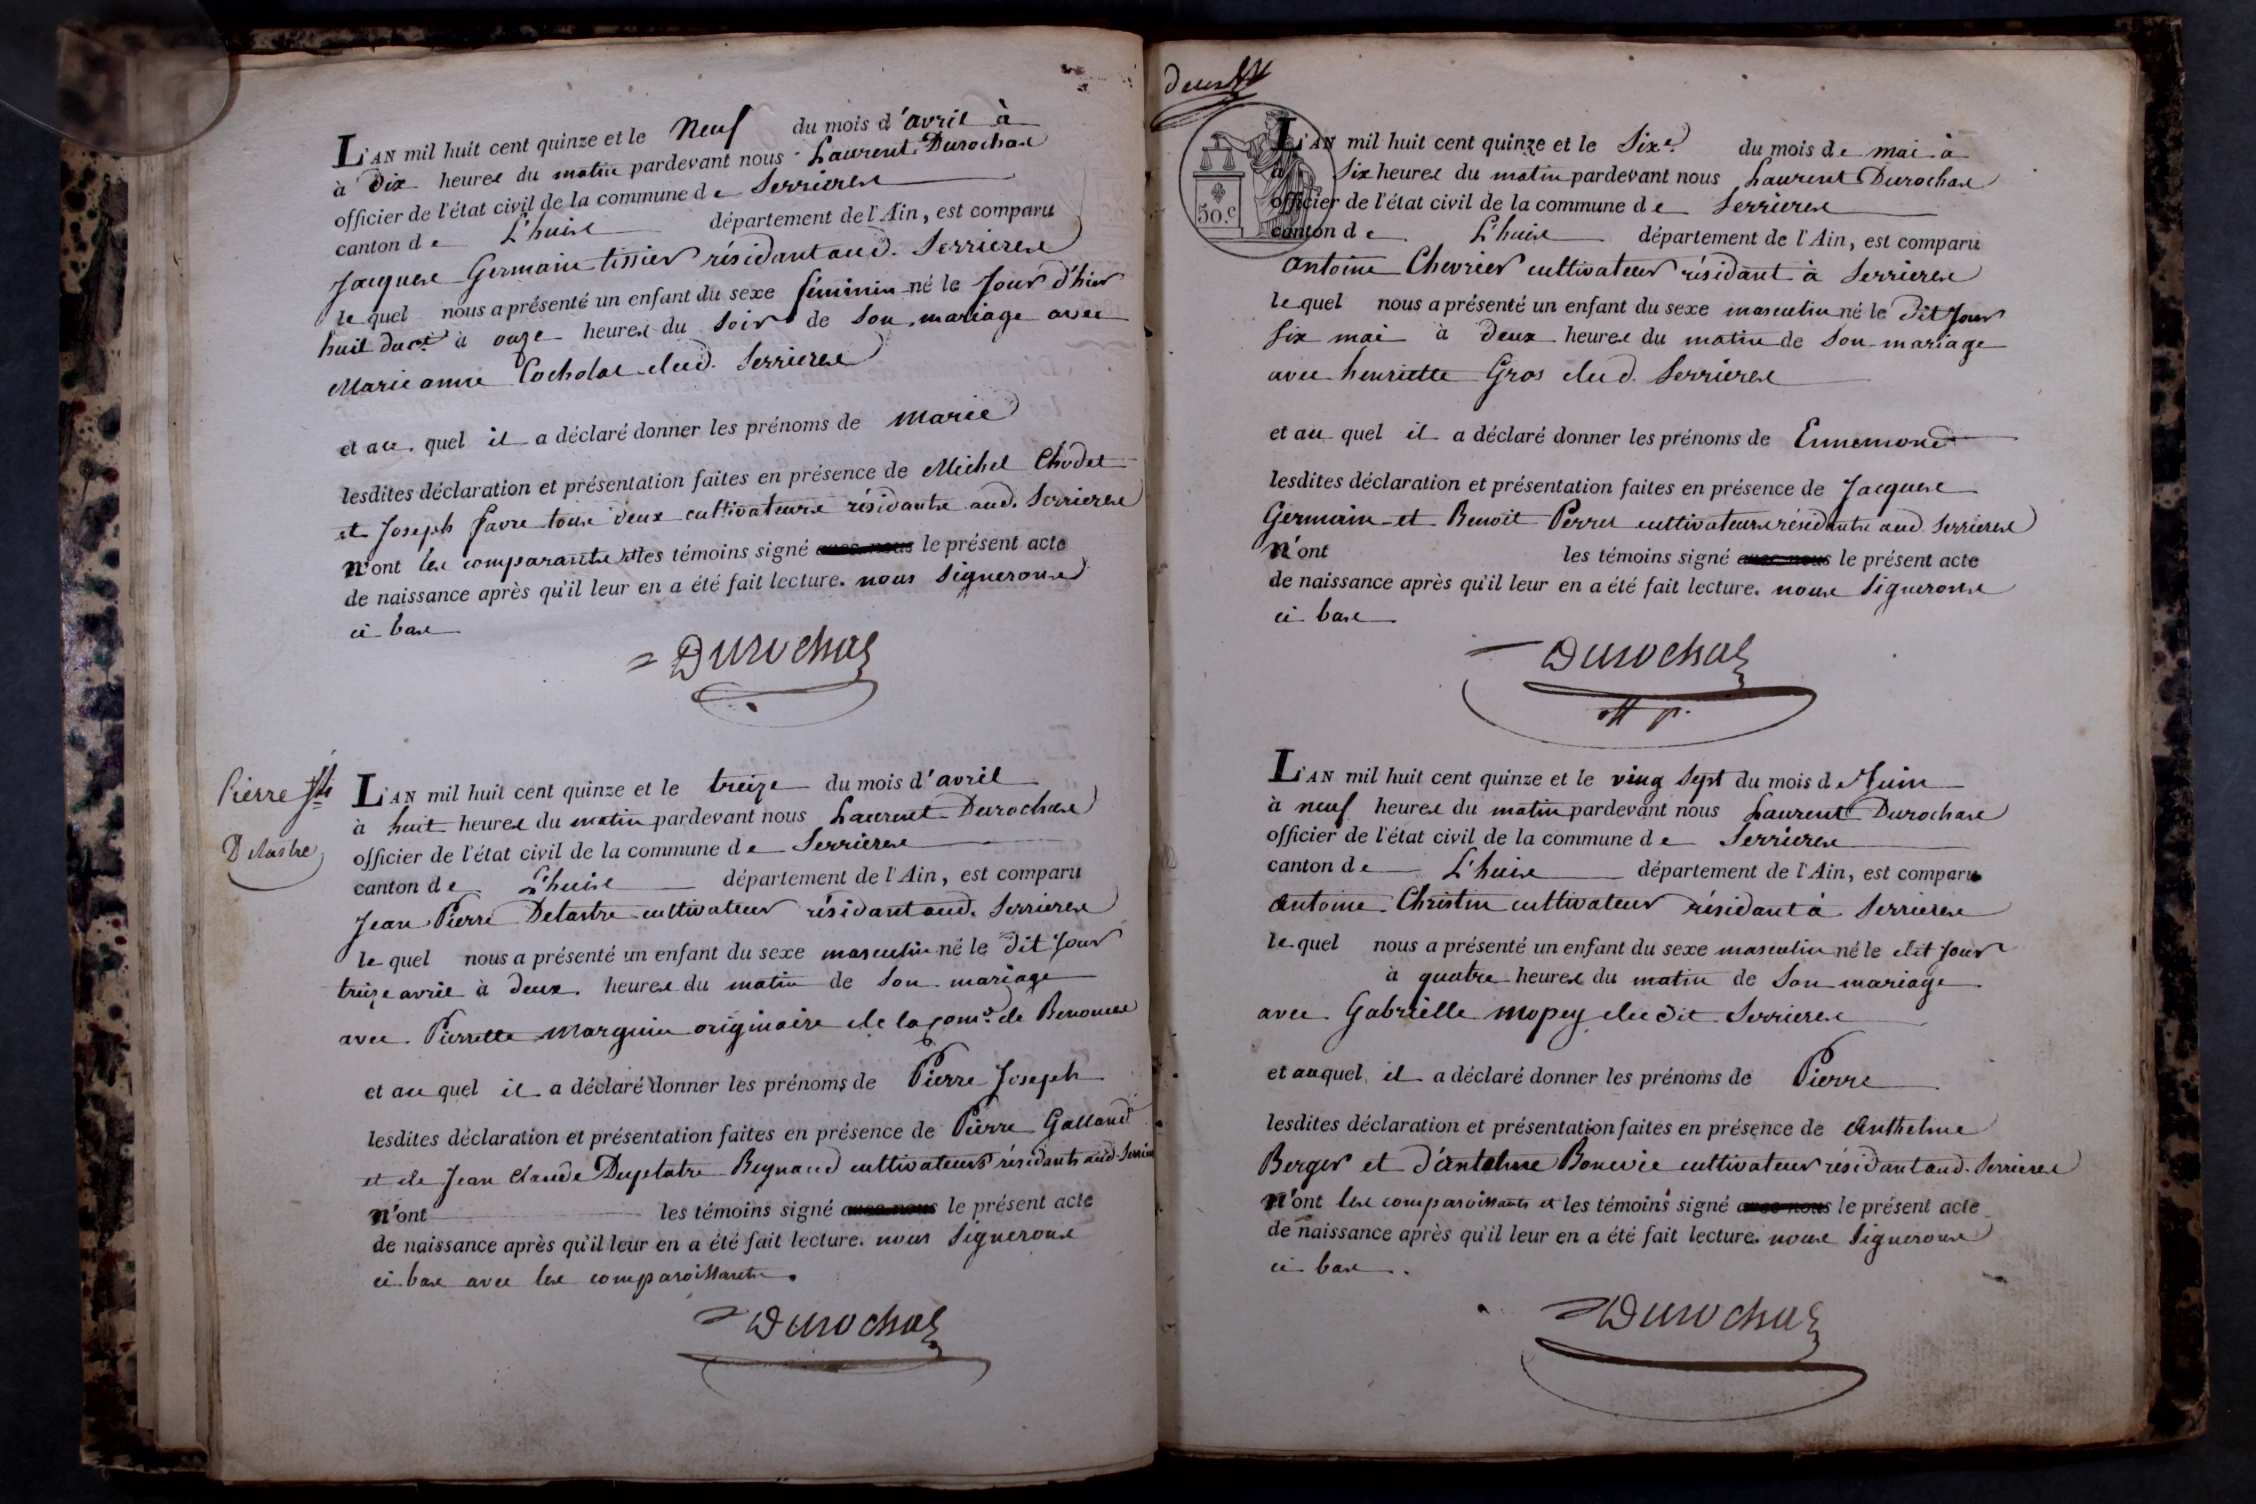 L'AN mil huit cent quinze et le Neuf du mois d'avril à
à Dix heures du matin pardevant nous Laurent Durochas
officier de l'état civil de la commune de Serrieres
canton de L'huis département de l'Ain, est comparu
Jacques Germain tissier résidant aud. Serrieres
le quel nous a présenté un enfant du sexe féminin né le Jour d'hier
huit du ct à onze heures du soir de son mariage avec
Marie anne Cocholat dud. Serrieres
et au quel il a déclaré donner les prénoms de Marie
lesdites déclaration et présentation faites en présence de Michel Chodet
et Joseph favre tous deux cultivateurs résidants aud. Serrieres
n'ont les comparants et les témoins signé avec nous le présent acte
de naissance après qu'il leur en a été fait lecture. nous signerons
ci bas
Durochas
Pierre Jh
Delastre
L'AN mil huit cent quinze et le treize du mois d'avril
à huit heures du matin pardevant nous Laurent Durochas
officier de l'état civil de la commune de Serrieres
canton de L'huis département de l'Ain, est comparu
Jean Pierre Delastre cultivateur résidant aud. Serrieres
le quel nous a présenté un enfant du sexe masculin né le dit Jour
treize avril à deux heures du matin de son mariage
avec Pierrette Marguin originaire de la com.e de Benonces
et au quel il a déclaré donner les prénoms de Pierre Joseph
lesdites déclaration et présentation faites en présence de Pierre Galland
et de Jean Claude Duplatre Reynaud cultivateurs résidants aud Serrieres
n'ont les témoins signé avec nous le présent acte
de naissance après qu'il leur en a été fait lecture. nous signerons
ci bas avec les comparoissants.
Durochas
50.c
L'AN mil huit cent quinze et le Sixe. du mois de mai à
à Six heures du matin pardevant nous Laurent Durochas
officier de l'état civil de la commune de Serrieres
canton de L'huis département de l'Ain, est comparu
antoine Chevrier cultivateur résidant à Serrieres
le quel nous a présenté un enfant du sexe masculin né le dit Jour
Six mai à deux heures du matin de son mariage
avec henriette Gros dud. Serrieres
et au quel il a déclaré donner les prénoms de Ennemond
lesdites déclaration et présentation faites en présence de Jacques
Germain et Benoit Perret cultivateurs résidants aud Serrieres
n'ont les témoins signé avec nous le présent acte
de naissance après qu'il leur en a été fait lecture. nous signerons
ci bas
Durochas
L'AN mil huit cent quinze et le ving sept du mois de Juin
à neuf heures du matin pardevant nous Laurent Durochas
officier de l'état civil de la commune de Serrieres
canton de L'huis département de l'Ain, est comparu
antoine Christin cultivateur résidant à Serrieres
le quel nous a présenté un enfant du sexe masculin né le dit Jour
à quatre heures du matin de son mariage
avec Gabrielle mopey du dit Serrieres
et auquel il a déclaré donner les prénoms de Pierre
lesdites déclaration et présentation faites en présence de Anthelme
Berger et d'antelme Bonevie cultivateur résidant aud. Serrieres
n'ont les comparoissants et les témoins signé avec nous le présent acte
de naissance après qu'il leur en a été fait lecture. nous signerons
ci bas.
Durochas